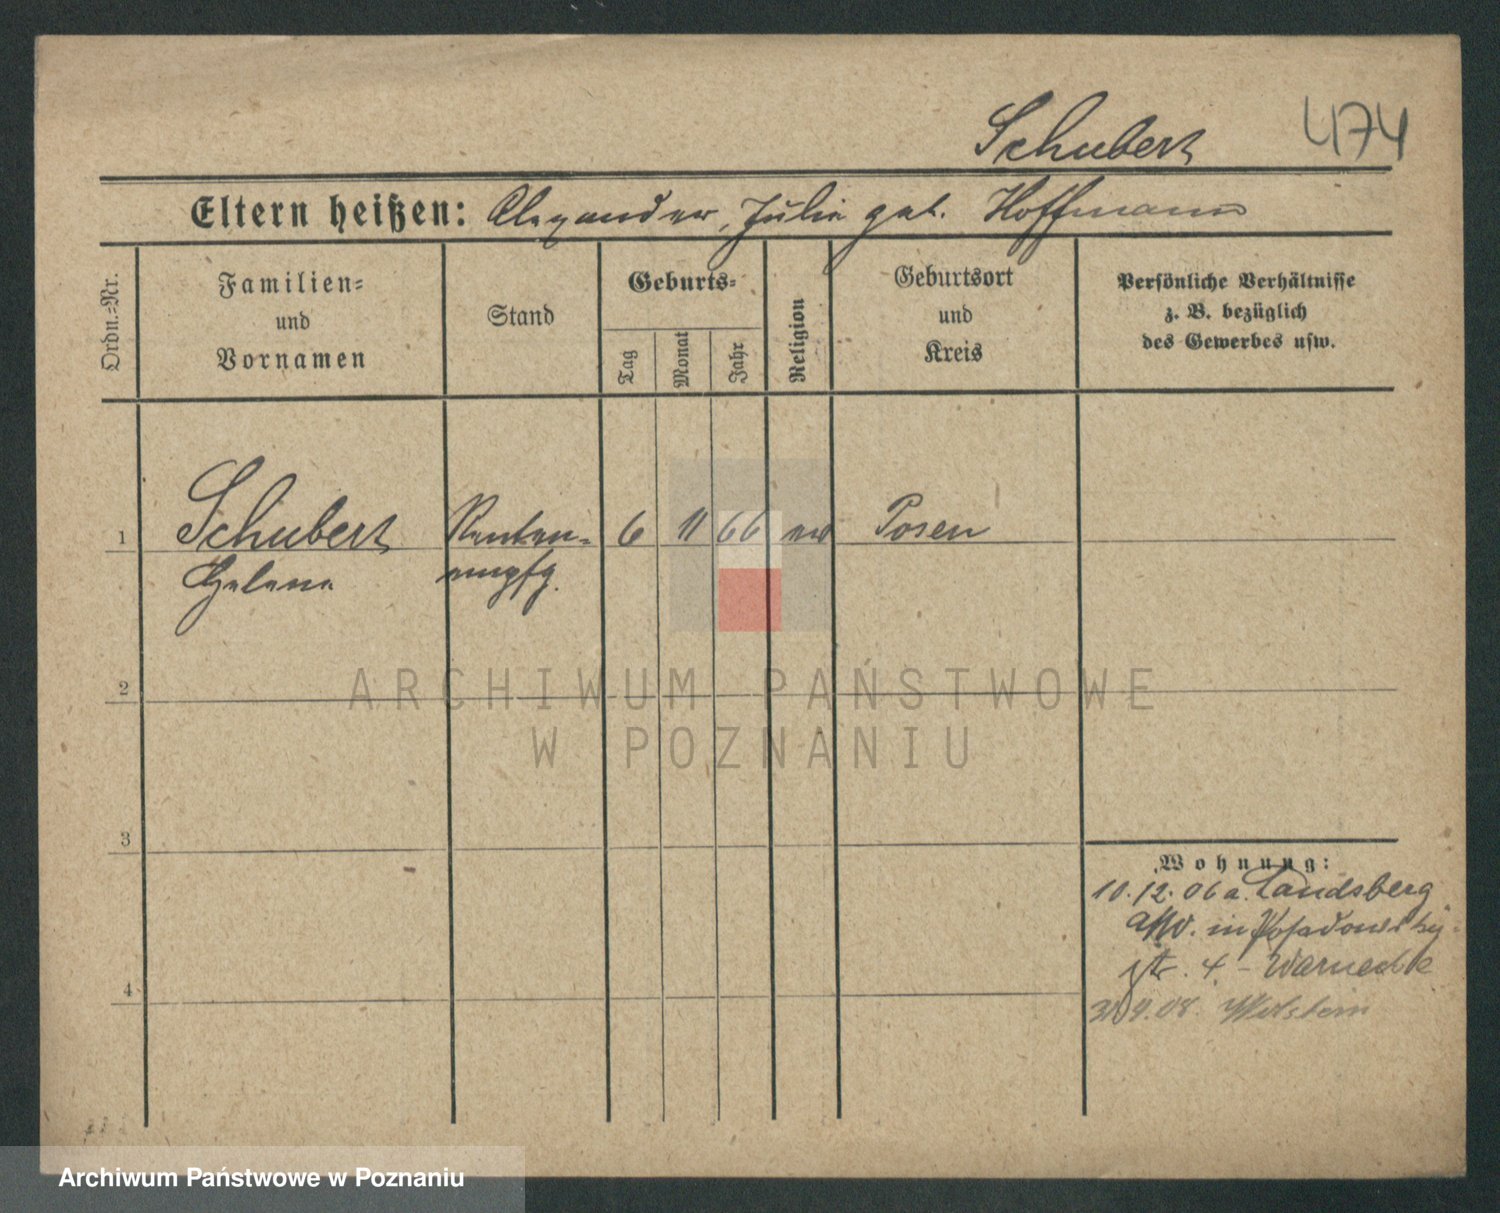 Schubert 474
Eltern heißen: Alexander, Julie geb. Hoffmann
Ordn.-Nr.
Familien-
und
Vornamen
Stand
Geburts-
Tag
Monat
Jahr
Religion
Geburtsort
und
Kreis
Persönliche Verhältnisse
z. B. bezüglich
des Gewerbes usw.
1 Schubert Renten- 6 11 66 ev Posen
Helene empfg.
2
3
4
ARCHIWUM PAŃSTWOWE
W POZNANIU
Wohnung:
10.12.06 a. Landsberg
a/W. in Posadowsky-
str. 4 - Warnecke
9.08. Wolstein
Archiwum Państwowe w Poznaniu